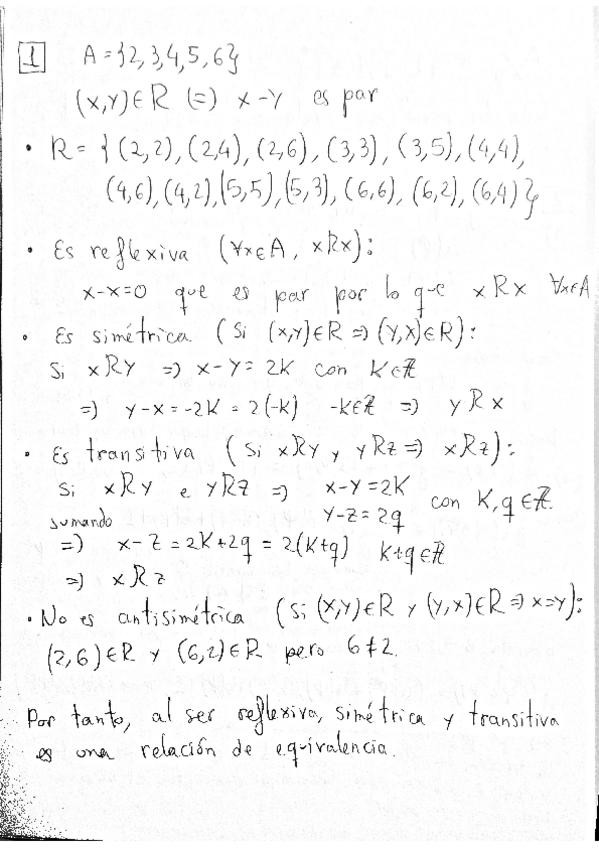 1 A = {2,3,4,5,6}
(x,y)∈R (=) x-y es par
• R = { (2,2), (2,4), (2,6), (3,3), (3,5), (4,4),
(4,6), (4,2), (5,5), (5,3), (6,6), (6,2), (6,4) }
• Es reflexiva (∀x∈A, xRx):
x-x=0 que es par por lo que xRx ∀x∈A
• Es simétrica (Si (x,y)∈R => (y,x)∈R):
Si xRy => x-y = 2K con K∈Z
=> y-x = -2K = 2(-k) -k∈Z => yRx
• Es transitiva (Si xRy y yRz => xRz):
Si xRy e yRz => x-y = 2K
y-z = 2q con K,q∈Z.
sumando
=> x-z = 2K+2q = 2(K+q) K+q∈Z
=> xRz
• No es antisimétrica (Si (x,y)∈R y (y,x)∈R => x=y):
(2,6)∈R y (6,2)∈R pero 6≠2.
Por tanto, al ser reflexiva, simétrica y transitiva
es una relación de equivalencia.